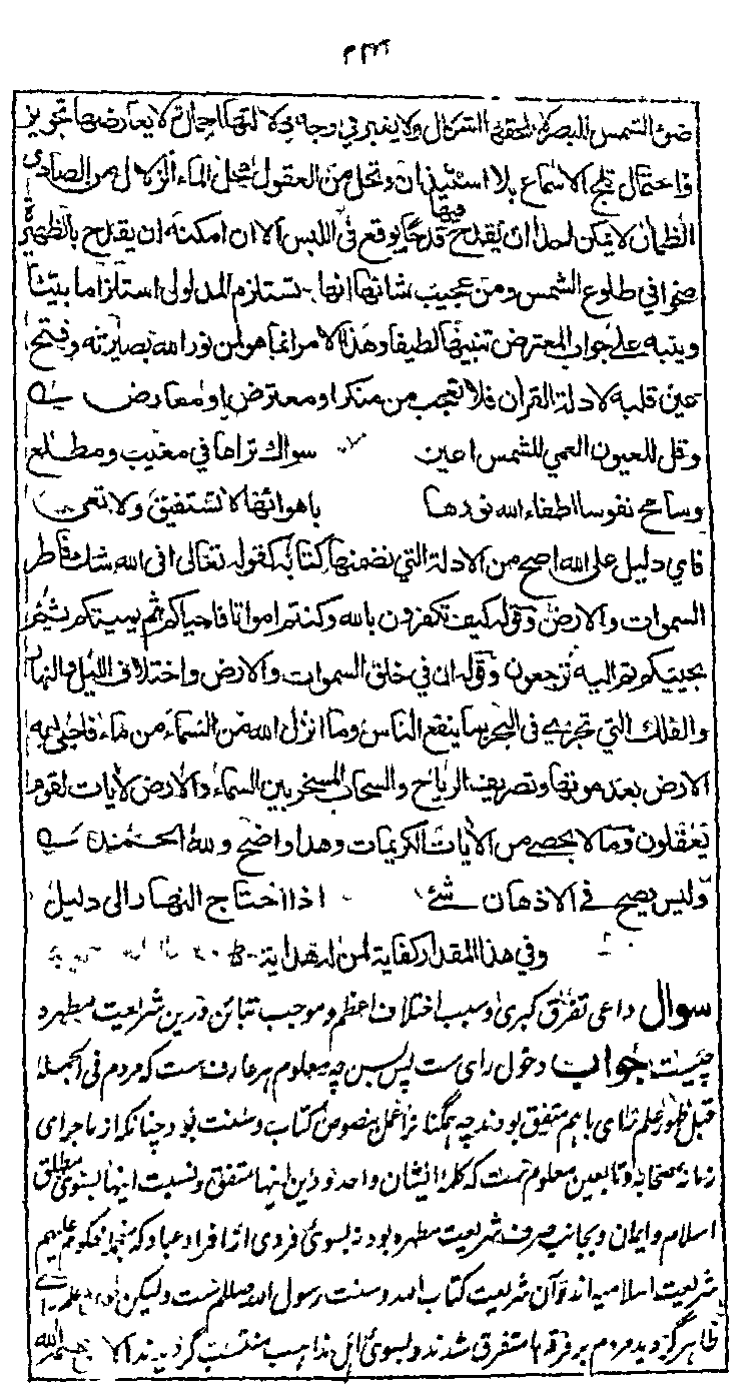 ضوء الشمس للبصر لا يلحقها اشكال ولا يغبر في وجه دلالتها اجمال ولا يعارضها تجويز
واحتمال تلج الاسماع بلا استيذان وتحل من العقول محل الماء الزلال من الصادي
الظمآن لا يمكن لاحد ان يقدح فيها قدحا يوقع في اللبس الا ان امكنه ان يقدح بالظهيرة
صحوا في طلوع الشمس ومن عجيب شانها انها تستلزم المدلول استلزاما بينا
وينبه على جواب المعترض تنبيها لطيفا وهذا الامر انما هو لمن نور الله بصيرته وفتح
عين قلبه لادلة القرآن فلا تعجب من منكر او معترض او معارض
وقل للعيون العمي للشمس اعين سواك تراها في مغيب ومطلع
وسامح نفوسا اطفاء الله نورها باهوائها لا تستفيق ولا تعي
فاي دليل على الله اصح من الادلة التي تضمنها كتابه كقوله تعالى افي الله شك فاطر
السموات والارض وقوله كيف تكفرون بالله وكنتم امواتا فاحياكم ثم يميتكم ثم
يحييكم ثم اليه ترجعون وقوله ان في خلق السموات والارض واختلاف الليل والنهار
والفلك التي تجري في البحر بما ينفع الناس وما انزل الله من السماء من ماء فاحيى به
الارض بعد موتها وتصريف الرياح والسحاب المسخر بين السماء والارض لآيات لقوم
يعقلون وما لا يحصى من الآيات الكريمات وهذا واضح ولله الحمد
وليس يصح في الاذهان شئ اذا احتاج النهار الى دليل
وفي هذا المقدار كفاية لمن له هداية
سوال داعی تفرق کبری و سبب اختلاف اعظم و موجب تباین درین شریعت مطهره
چیست جواب دخول رای ست پس بس چه معلوم هر عارف ست که مردم فی الجمله
قبل ظهور علم رای باهم متفق بودند چه همگنان را عمل بنصوص کتاب و سنت بود چنانکه از ماجرای
زمانه صحابه و تابعین معلوم ست که کلمه ایشان واحد و دین اینها متفق و نسبت اینها بسوی مطلق
اسلام و ایمان و بجانب صرف شریعت مطهره بود نه بسوی فردی از افراد عباد که محکوم علیهم
شریعت اسلامیه اند و آن شریعت کتاب الله و سنت رسول الله صلعم ست ولیکن علم رای
ظاهر گردید مردم بر فرقه ها متفرق شدند و بسوی اهل مذاهب منتسب گردیدند الا من رحمه الله